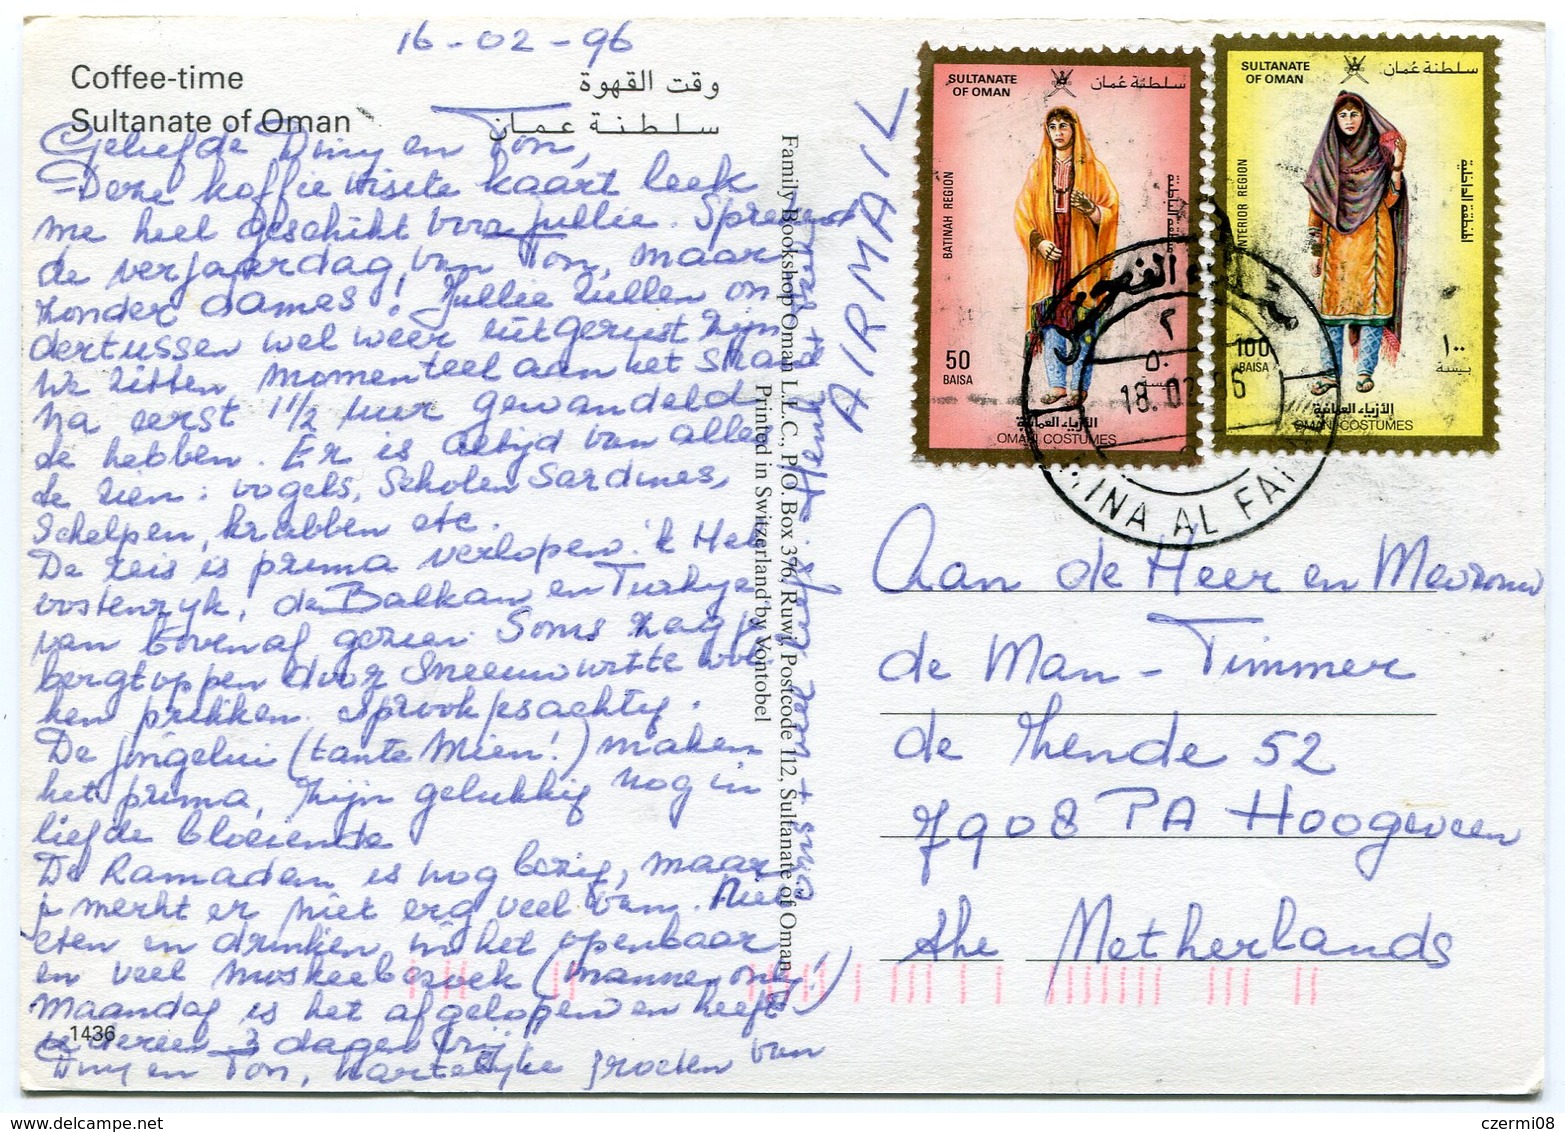 16-02-96
Coffee-time
وقت القهوة
Sultanate of Oman
سلطنة عمان
Geliefde Diny en Ton,
Deze koffie visite kaart leek
me heel geschikt voor jullie.
de verjaardag van Ton, maar
zonder dames! Jullie zullen on
dertussen wel weer uitgerust zijn
We zitten momenteel aan het strand
na eerst 1 1/2 uur gewandeld
te hebben. Er is altijd van alles
te zien: vogels, scholen sardines,
schelpen, krabben etc.
De reis is prima verlopen. 'k Heb
oostenrijk, de Balkan en Turkije
van bovenaf gezien. Soms zag je
bergtoppen door sneeuwwitte wol
ken prikken. Sprookjesachtig.
De jongelui (tante Mien!) maken
het prima, zijn gelukkig nog in
liefde bloeiende
De Ramadan is nog bezig, maar
je merkt er niet erg veel van. Niet
eten en drinken in het openbaar
en veel moskeebezoek (mannen only!)
Maandag is het afgelopen en heeft
iedereen 3 dagen vrij
Diny en Ton, hartelijke groeten van
1436
Family Bookshop Oman L.L.C., P.O. Box 376, Ruwi, Postcode 112, Sultanate of Oman
Printed in Switzerland by Vontobel
AIRMAIL
SULTANATE
OF OMAN
سلطنة عمان
BATINAH REGION
منطقة الباطنة
50
BAISA
٥٠
بيسة
الأزياء العمانية
OMANI COSTUMES
SULTANATE
OF OMAN
سلطنة عمان
INTERIOR REGION
المنطقة الداخلية
100
BAISA
١٠٠
بيسة
الأزياء العمانية
OMANI COSTUMES
MINA AL FA
Aan de Heer en Mevrouw
de Man - Timmer
de Mende 52
7908 PA Hoogeveen
the Netherlands
czermi08